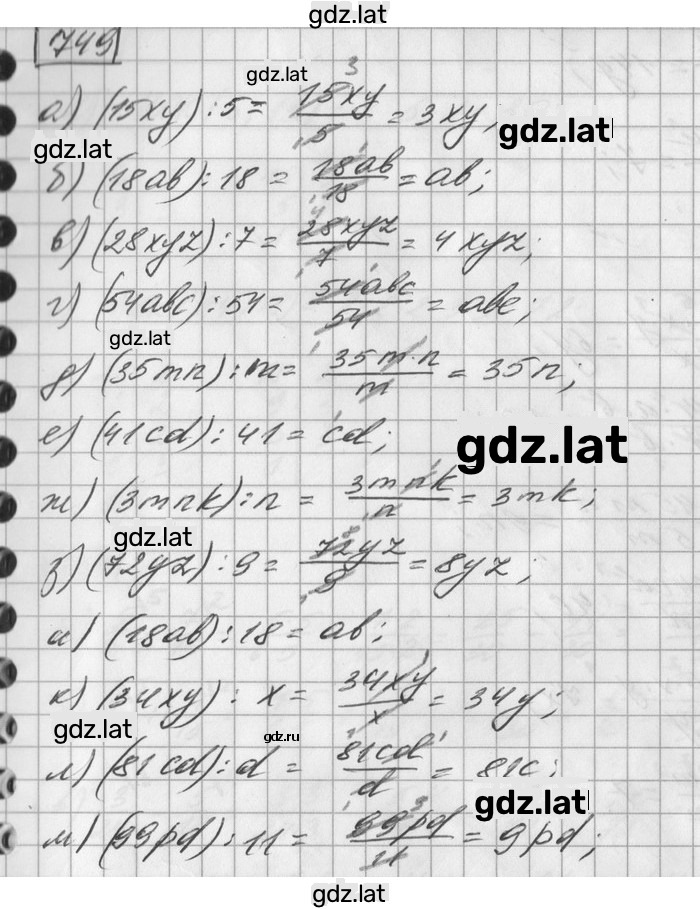 gdz.lat
749
gdz.lat
а) (15xy) : 5 = 15xy/5 = 3xy;
3
gdz.lat
gdz.lat
б) (18ab) : 18 = 18ab/18 = ab;
в) (28xyz) : 7 = 28xyz/7 = 4xyz;
4
г) (54abc) : 54 = 54abc/54 = abc;
gdz.lat
д) (35mn) : m = 35m·n/m = 35n;
е) (41cd) : 41 = cd;
gdz.lat
ж) (3mnk) : n = 3mnk/n = 3mk;
gdz.lat
з) (72yz) : 9 = 72yz/9 = 8yz;
8
и) (18ab) : 18 = ab;
к) (34xy) : x = 34xy/x = 34y;
gdz.lat
gdz.ru
л) (81cd) : d = 81cd/d = 81c;
gdz.lat
м) (99pd) : 11 = 99pd/11 = 9pd;
gdz.lat